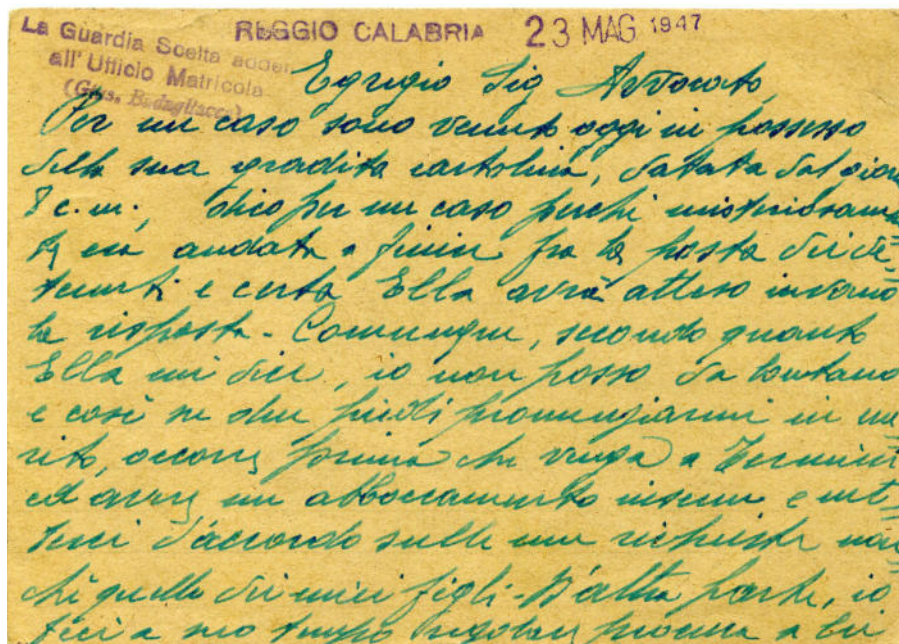 REGGIO CALABRIA 23 MAG 1947
La Guardia Scelta addet
all'Ufficio Matricola
Egregio Sig Avvocato,
Per un caso sono venuto oggi in possesso
della sua gradita cartolina, datata dal gior
8 c.m., dico per un caso perchè misteriosamen
te era andata a finire fra la posta dei de=
tenuti e certo Ella avrà atteso invano
la risposta - Comunque, secondo quanto
Ella mi dice, io non posso da lontano
e così su due piedi pronunziarmi in me
rito, occorre prima che venga a Termini
ed avere un abboccamento insieme e met=
terci d'accordo sulle mie richieste non
chè quelle dei miei figli - D'altra parte, io
feci a suo tempo regolare procura a